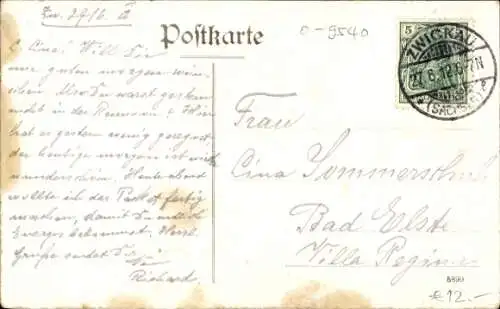 Zw. 27/6. 12
Postkarte
C-9540
5
ZWICKAU
27.6.12. 6-7N
(SACHSEN)
L. Cina! Will Dir
nur guten morgen wün-
schen. Also Du warst gestern
nicht in der Reunion? Hier
hat es gestern wenig geregnet
der heutige morgen ist wieder
wunderschön. Heute abend
wollte ich das Paket fertig
machen, damit Du endlich
bekommst. Herzl.
Grüße sendet Dir
Dein
Richard.
Frau
Cina Sommerschuh
Bad Elster
Villa Regina
€12.-